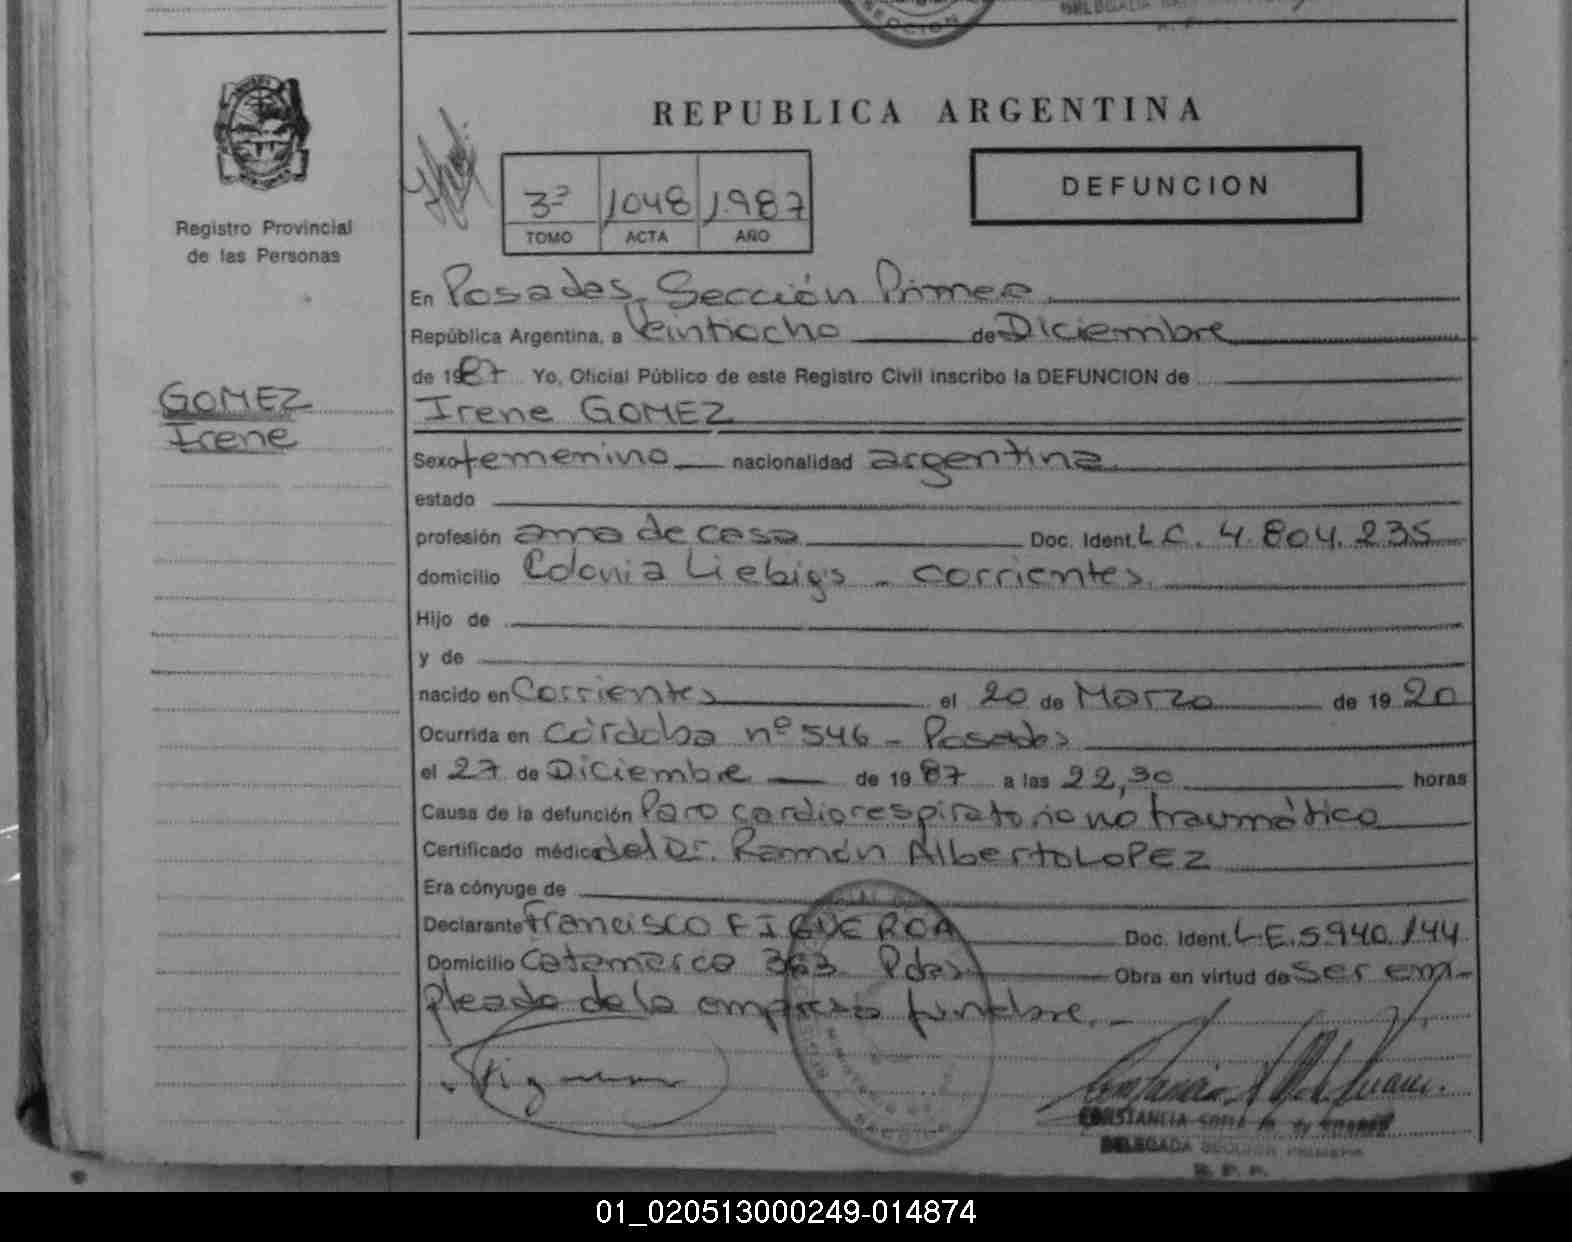 REPUBLICA ARGENTINA
DEFUNCION
3º 1048 1987
TOMO ACTA AÑO
Registro Provincial
de las Personas
GOMEZ
Irene
En Posadas, Sección Primera
República Argentina, a Veintiocho de Diciembre
de 1987 Yo, Oficial Público de este Registro Civil inscribo la DEFUNCION de
Irene GOMEZ
Sexo femenino nacionalidad argentina
estado
profesión ama de casa Doc. Ident. L.C. 4.804.235
domicilio Colonia Liebigs - Corrientes
Hijo de
y de
nacido en Corrientes el 20 de Marzo de 1920
Ocurrida en Córdoba nº 546 - Posadas
el 27 de Diciembre de 1987 a las 22,30 horas
Causa de la defunción Paro cardiorespiratorio no traumático
Certificado médico del Dr. Ramón Alberto LOPEZ
Era cónyuge de
Declarante Francisco FIGUEROA Doc. Ident. L.E. 5.940.144
Domicilio Catamarca 363 Pdas Obra en virtud de ser em-
pleado de la empresa fúnebre.
CONSTANCIA SOFIA
DELEGADA SECCION PRIMERA
R. P. P.
01_020513000249-014874